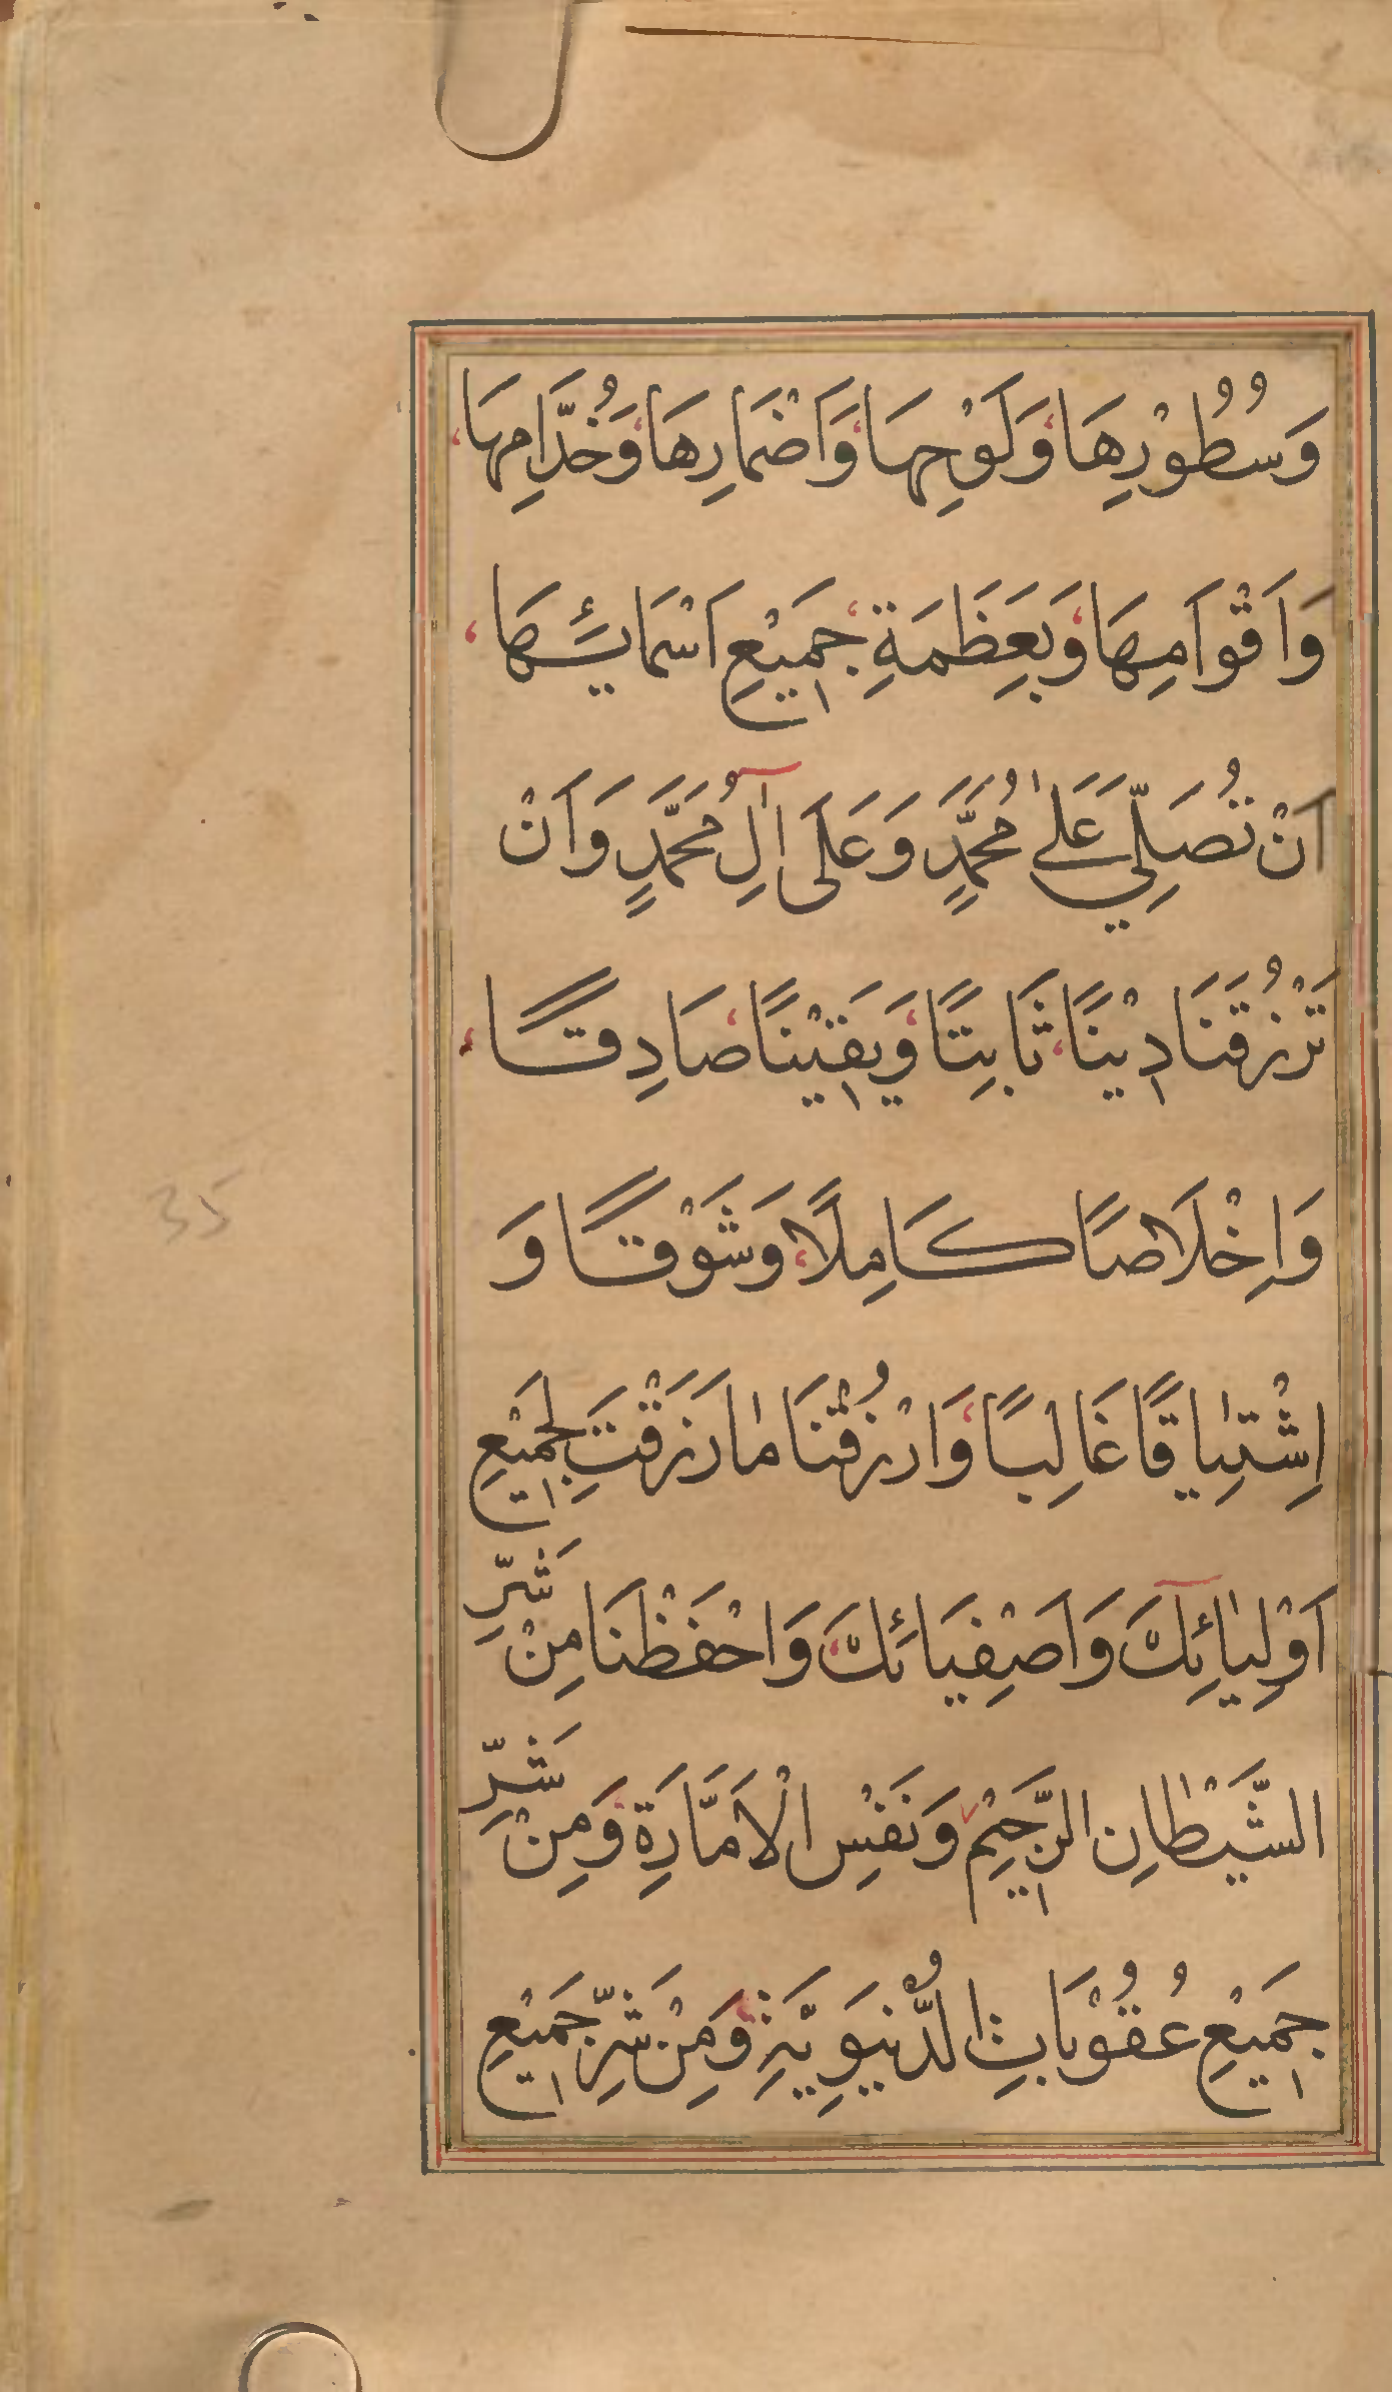 وَسُطُوْرِهَا وَلَوْحِهَا وَاَضْمَارِهَا وَخُدَّامِهَا
وَاَقْوَامِهَا وَبِعَظَمَةِ جَمِيْعِ اَسْمَائِهَا
اَنْ تُصَلِّيَ عَلٰى مُحَمَّدٍ وَعَلَى اٰلِ مُحَمَّدٍ وَاَنْ
تَرْزُقَنَا دِيْنًا ثَابِتًا وَيَقِيْنًا صَادِقًا
وَاِخْلَاصًا كَامِلًا وَشَوْقًا وَ
اِشْتِيَاقًا غَالِبًا وَارْزُقْنَا مَا رَزَقْتَ لِجَمِيْعِ
اَوْلِيَائِكَ وَاَصْفِيَائِكَ وَاحْفَظْنَا مِنْ شَرِّ
الشَّيْطَانِ الرَّجِيْمِ وَنَفْسِ الْاَمَّارَةِ وَمِنْ شَرِّ
جَمِيْعِ عُقُوْبَاتِ الدُّنْيَوِيَّةِ وَمِنْ شَرِّ جَمِيْعِ
35